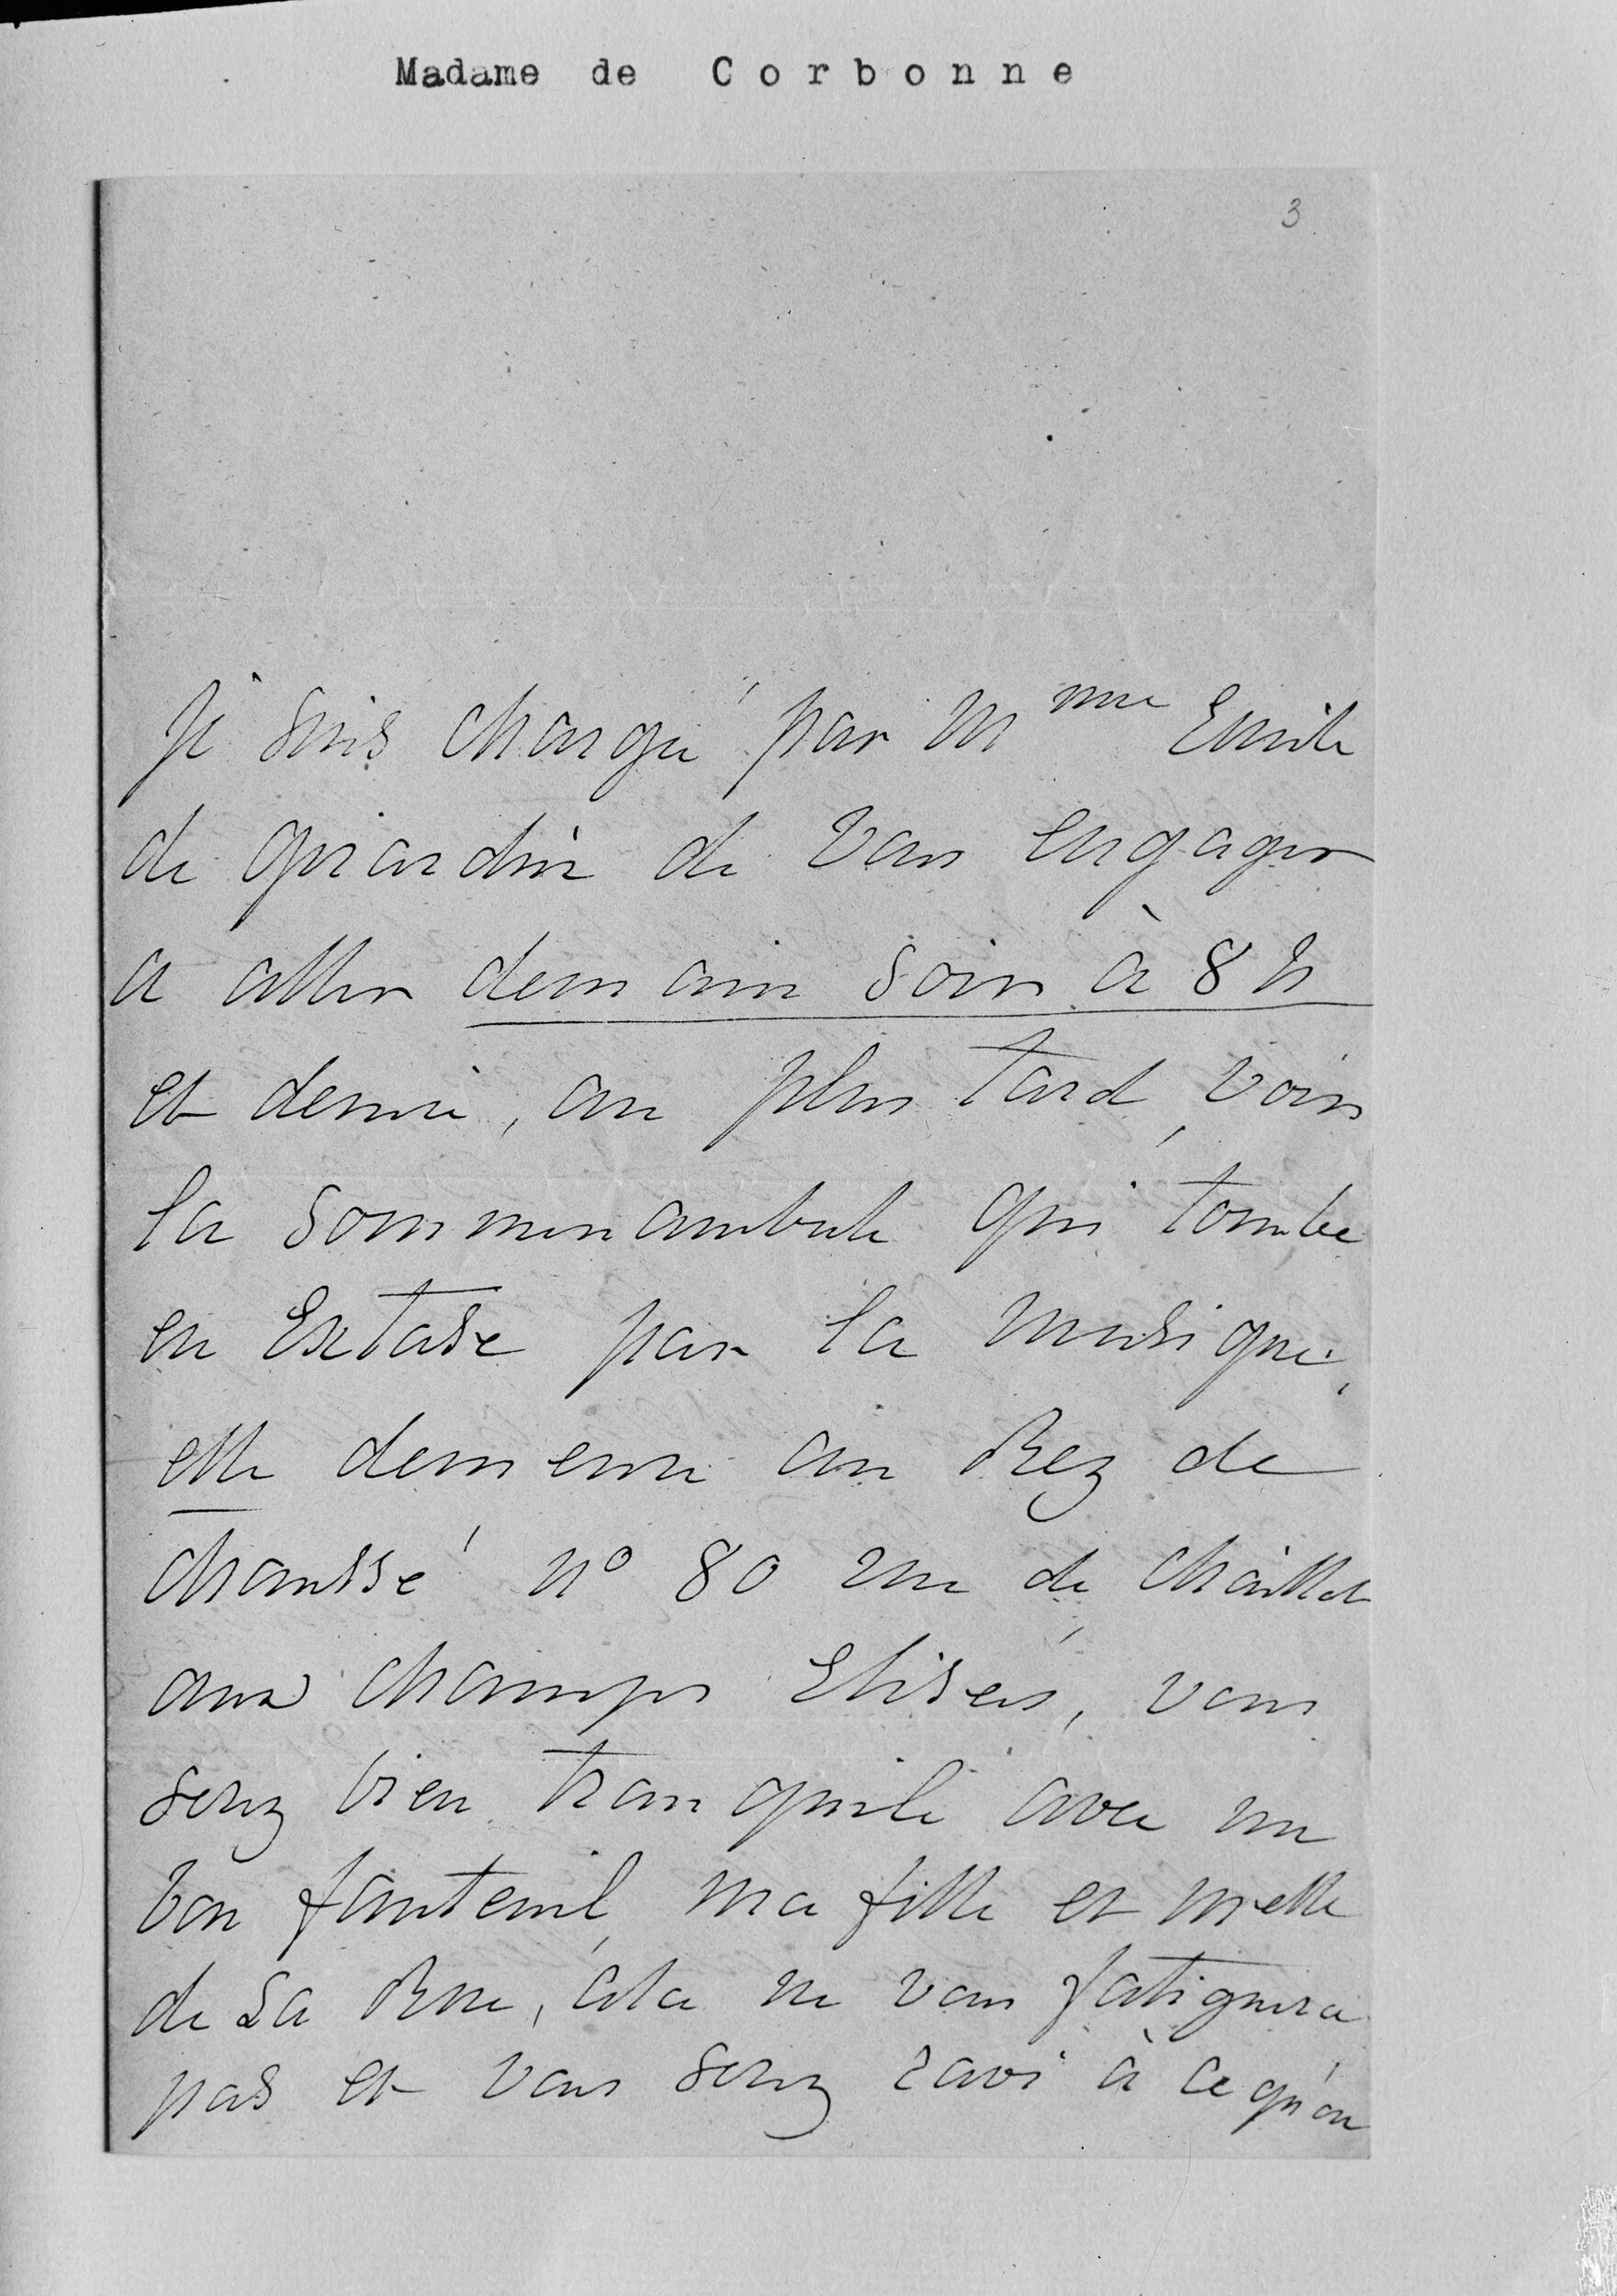 Madame de Corbonne
3
je suis chargée par Mme Emile
de girardin de vous engager
a aller demain soir à 8 h
et demie, au plus tard, voir
la sommenambule qui tombe
en Extase par la musique,
elle demeure au Rez de
chaussé n° 80 rue de chaillot
aux champs Elisées, vous
serez bien tranquile avec un
bon fauteuil, ma fille et melle
de La Rue, cela ne vous fatiguera
pas et vous serez ravi à ce qu'on